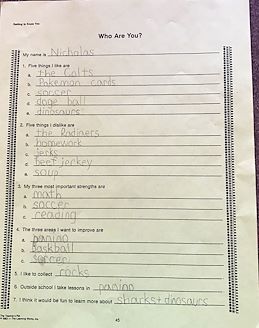 Getting to Know You
Who Are You?
My name is Nicholas
1. Five things I like are
a. the Colts
b. Pokemon cards
c. soccer
d. doge ball
e. dinosaurs
2. Five things I dislike are
a. the Radiners
b. homework
c. jerks
d. beef jerkey
e. soup
3. My three most important strengths are
a. math
b. soccer
c. reading
4. The three areas I want to improve are
a. panino
b. Baskball
c. soccer
5. I like to collect rocks
6. Outside school I take lessons in panino
7. I think it would be fun to learn more about sharks + dinosaurs
45